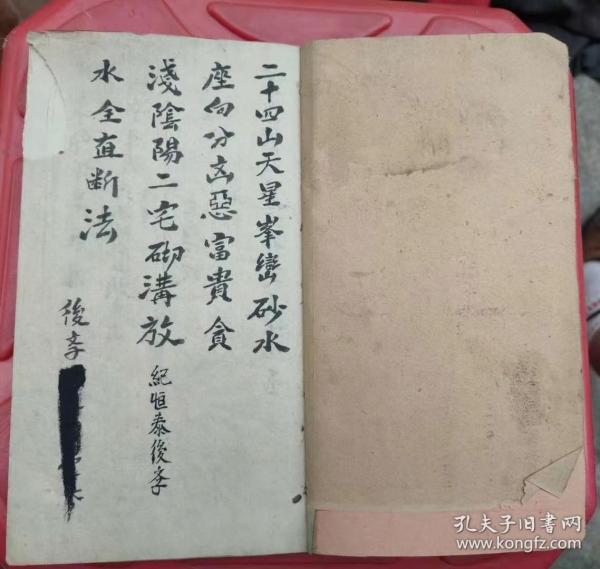 二十四山天星峯巒砂水
座向分凶惡富貴貪
淺陰陽二宅砌溝放
水全直断法
紀恒泰後孝
後孝
孔夫子旧书网
www.kongfz.com